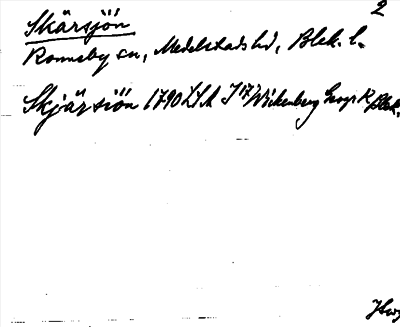 2
Skärsjön
Ronneby sn, Medelstads hd, Blek. l.
Skjärsiön 1790 LSA I 17 Wickenberg Geogr K Blek.